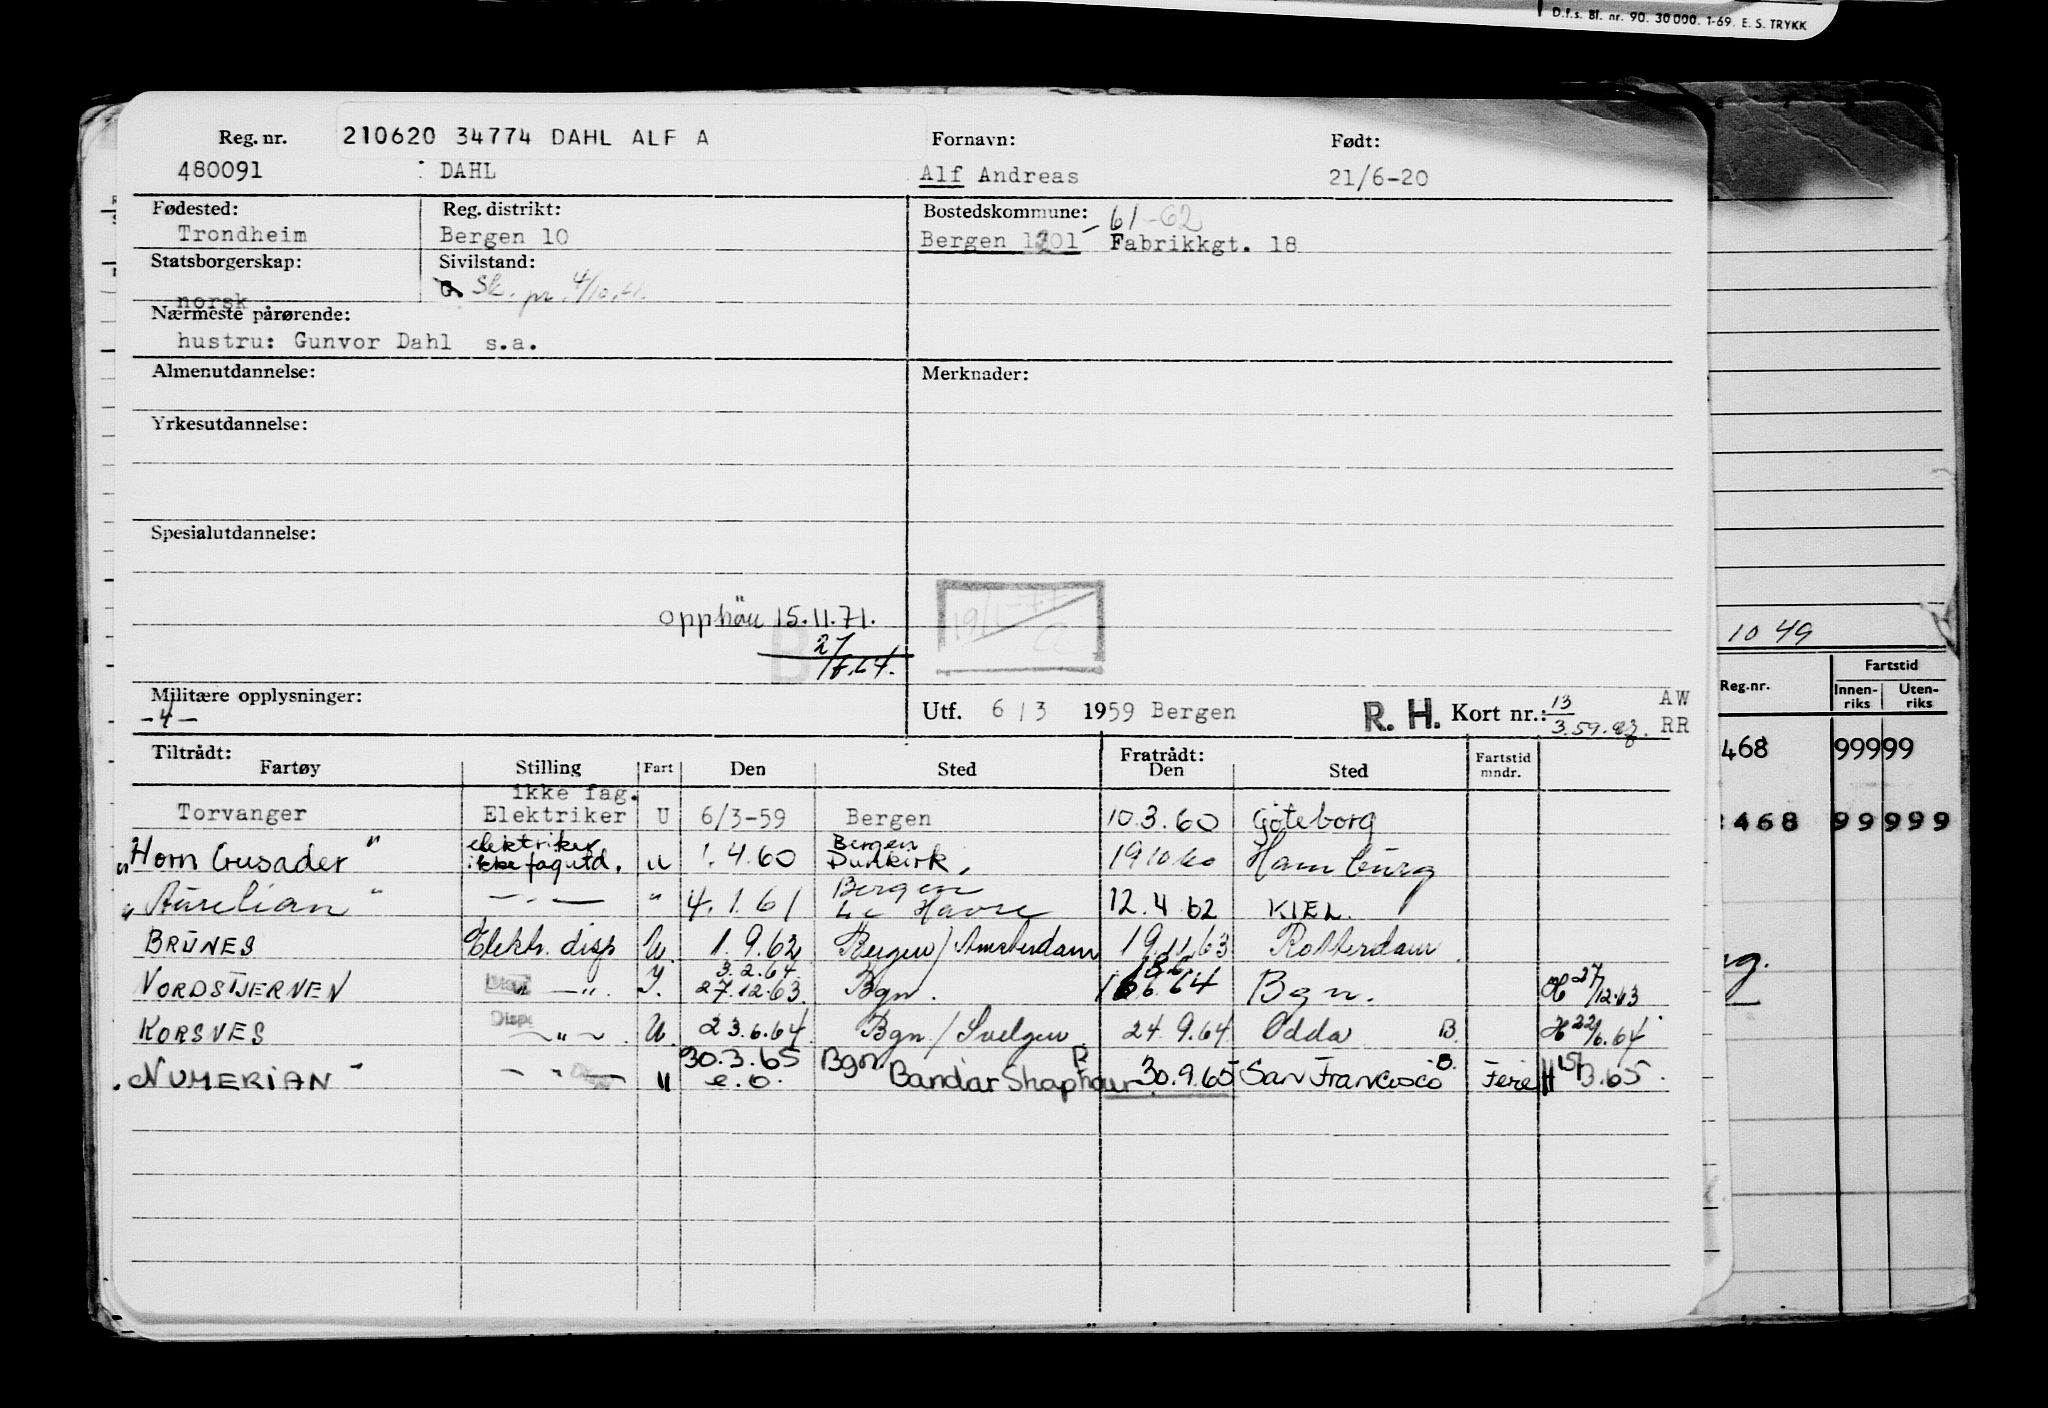 D.f.s. Bl. nr. 90. 30000. 1-69. E. S. TRYKK
Reg. nr. 210620 34774 DAHL ALF A Fornavn: Født:
480091 DAHL Alf Andreas 21/6-20
Fødested: Reg. distrikt: Bostedskommune: 61-62
Trondheim Bergen 10 Bergen 1201 Fabrikkgt. 18
Statsborgerskap: Sivilstand:
norsk G. Sk. pr. 4/10.61.
Nærmeste pårørende:
hustru: Gunvor Dahl s.a.
Almenutdannelse: Merknader:
Yrkesutdannelse:
Spesialutdannelse:
opphöu 15.11.71.
10 49
Militære opplysninger:
-4-
Utf. 6/3 1959 Bergen R. H. Kort nr.: 13/3.59. AW RR
Reg.nr. Fartstid
Innen-riks Uten-riks
468 99999
468 99999
Tiltrådt: Fratrådt:
Fartøy Stilling Fart Den Sted Den Sted Fartstid mndr.
Torvanger ikke fag. Elektriker U 6/3-59 Bergen 10.3.60 Göteborg
"Horn Crusader" elektriker ikke fagutd. u 1.4.60 Bergen Dunkirk, 19 10 60 Hamburg
"Aurelian" —"— " 4.1.61 Bergen Le Havre 12.4.62 KIEL.
BRUNES Elektr. disp U. 1.9.62 Bergen/Amsterdam 19.11.63 Rotterdam
3.2.64
NORDSTJERNEN —"— I. 27.12.63 Bgn. 16.6.64 Bgn. H 27/12.63
KORSVES Disp —"— U. 23.6.64 Bgn/Svelgen 24.9.64 Odda B. H 22/6.64
30.3.65 Bgn B.
"NUMERIAN" —"— " e.o. Bandar Shaphour 30.9.65 San Francisco Ferie H 15/3.65.